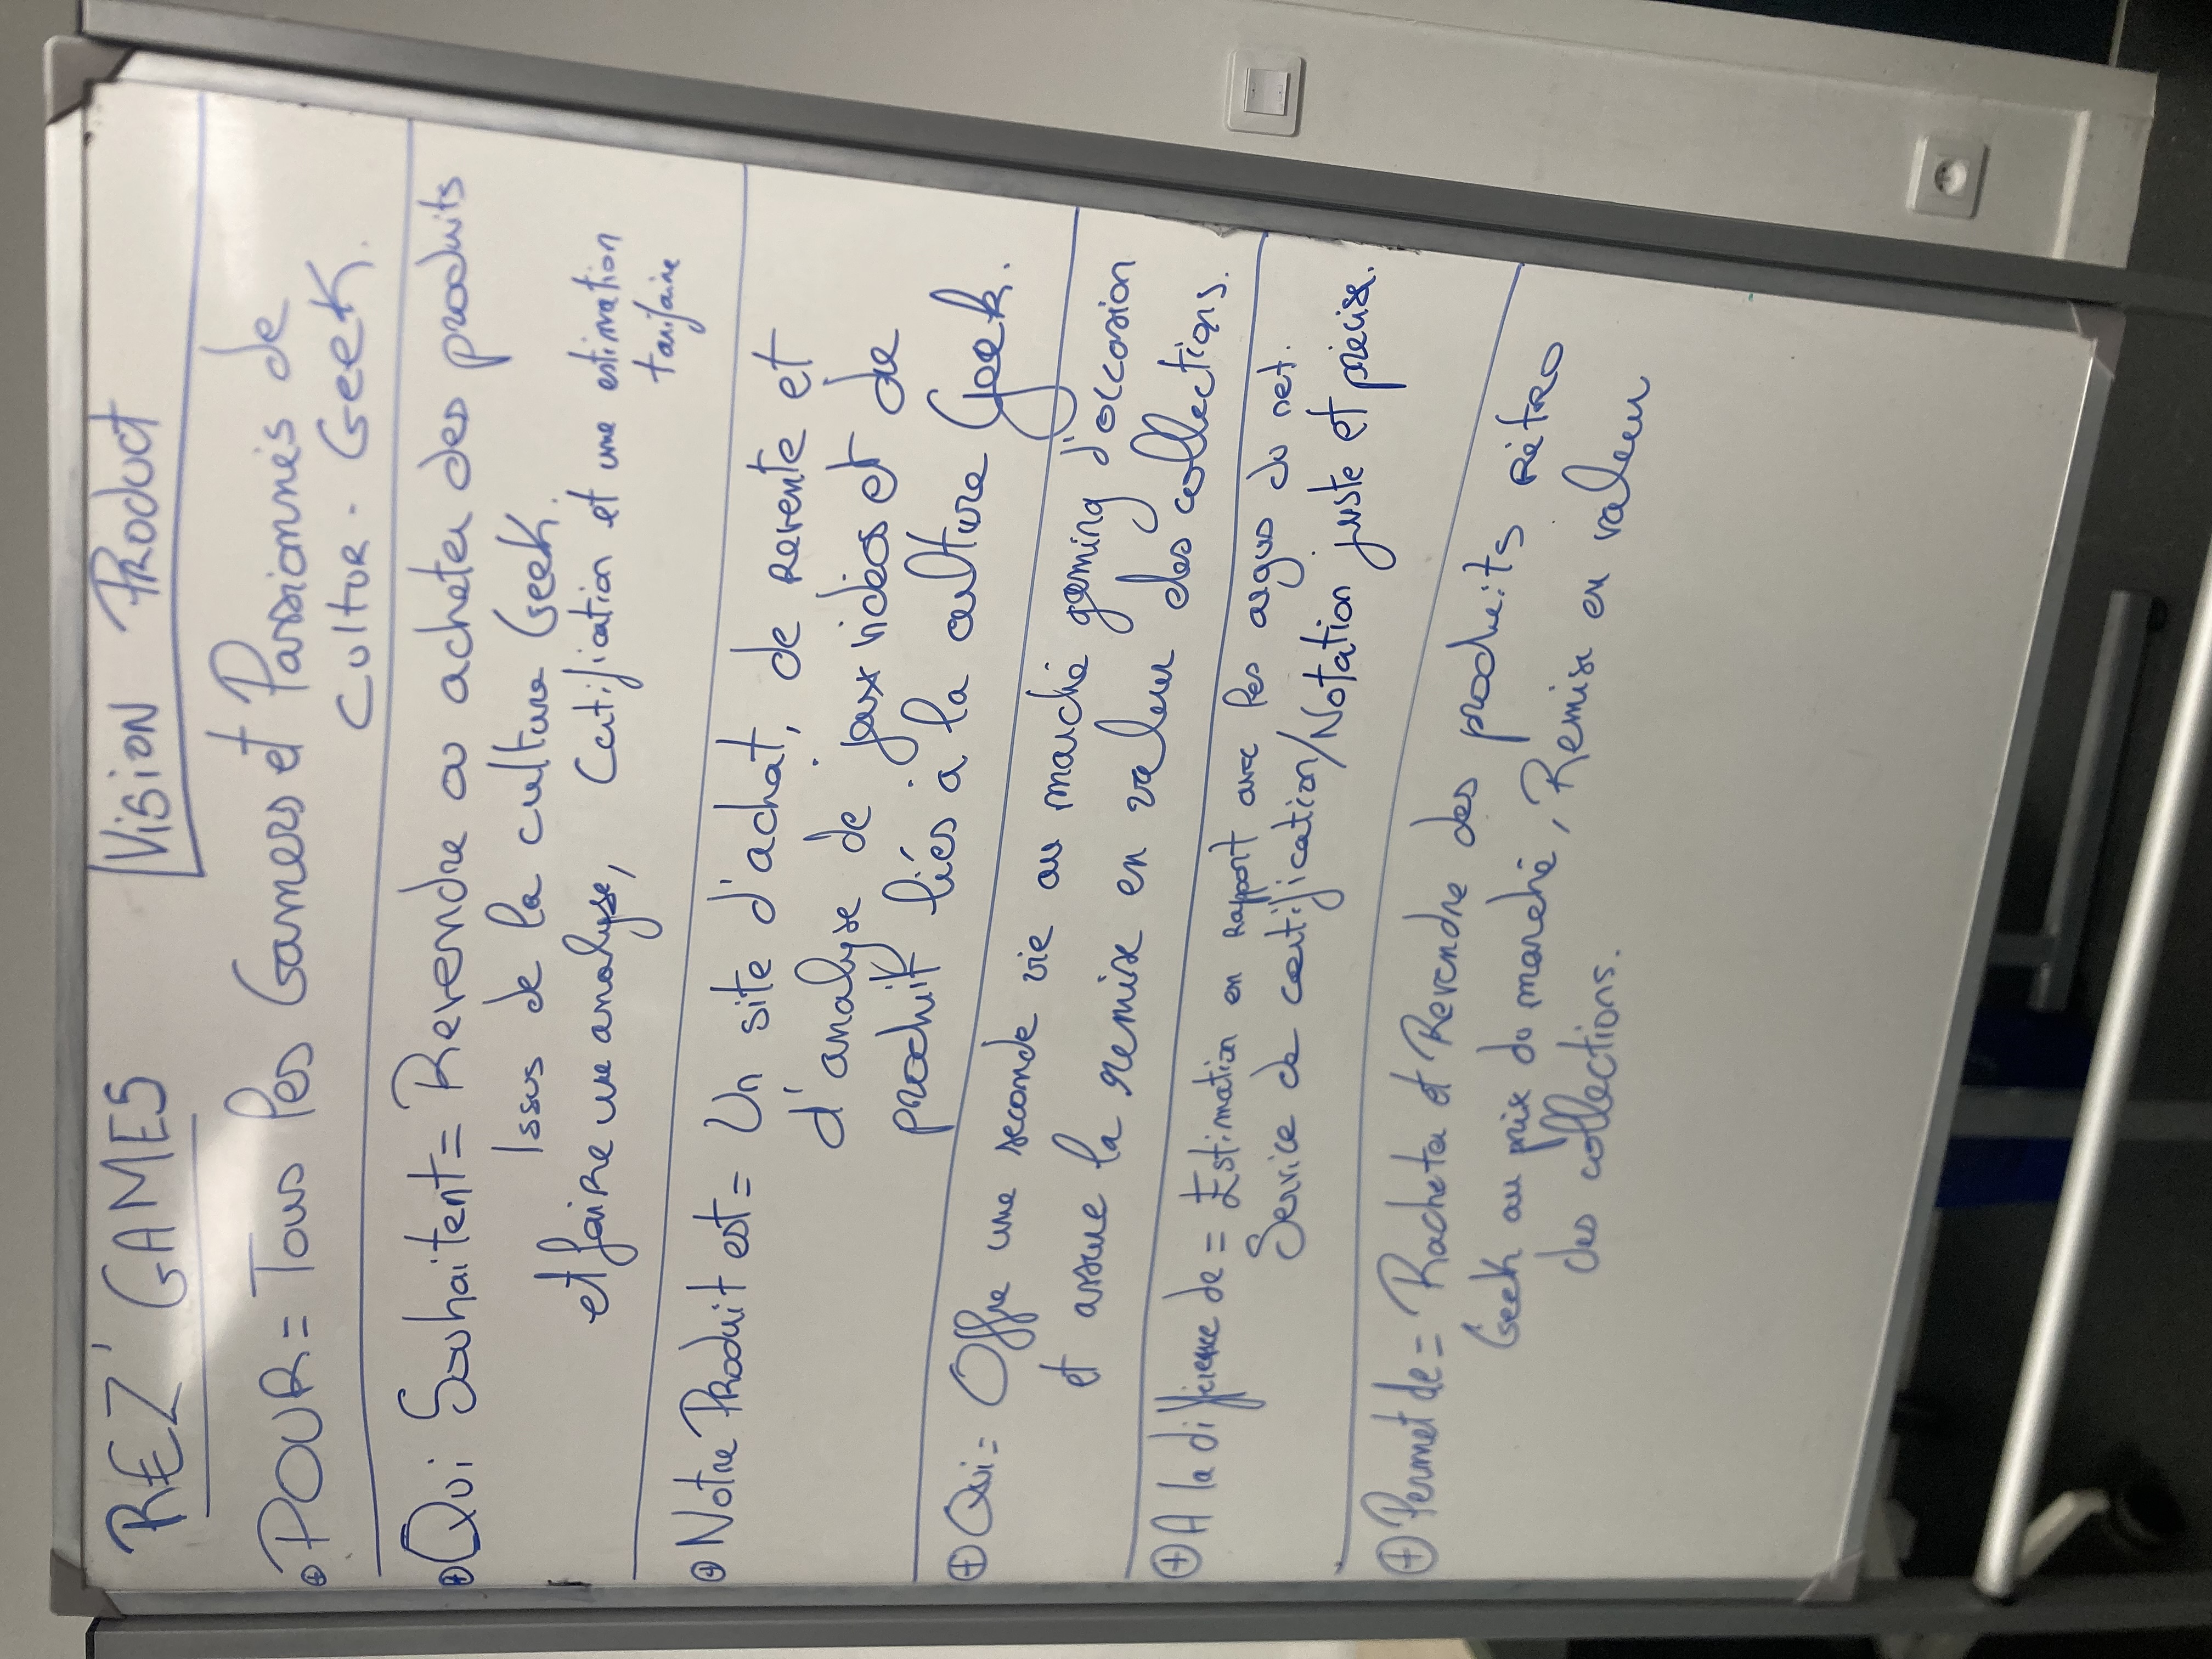 REZ' GAMES
Vision Product
POUR = Tous les Gamers et Passionnés de
Cultur - Geek.
Qui Souhaitent = Revendre ou acheter des produits
Issus de la culture Geek.
et faire une analyse, Certification et une estimation
tarifaire
Notre Produit est = Un site d'achat, de revente et
d'analyse de jeux vidéos et de
produit liés à la culture Geek.
Qui = Offre une seconde vie au marché gaming d'occasion
et assure la remise en valeur des collections.
A la différence de = Estimation en rapport avec les argus du net.
Service de certification/Notation juste et précise.
Permet de = Racheter et Revendre des produits rétro
Geek au prix du marché, Remise en valeur
des collections.